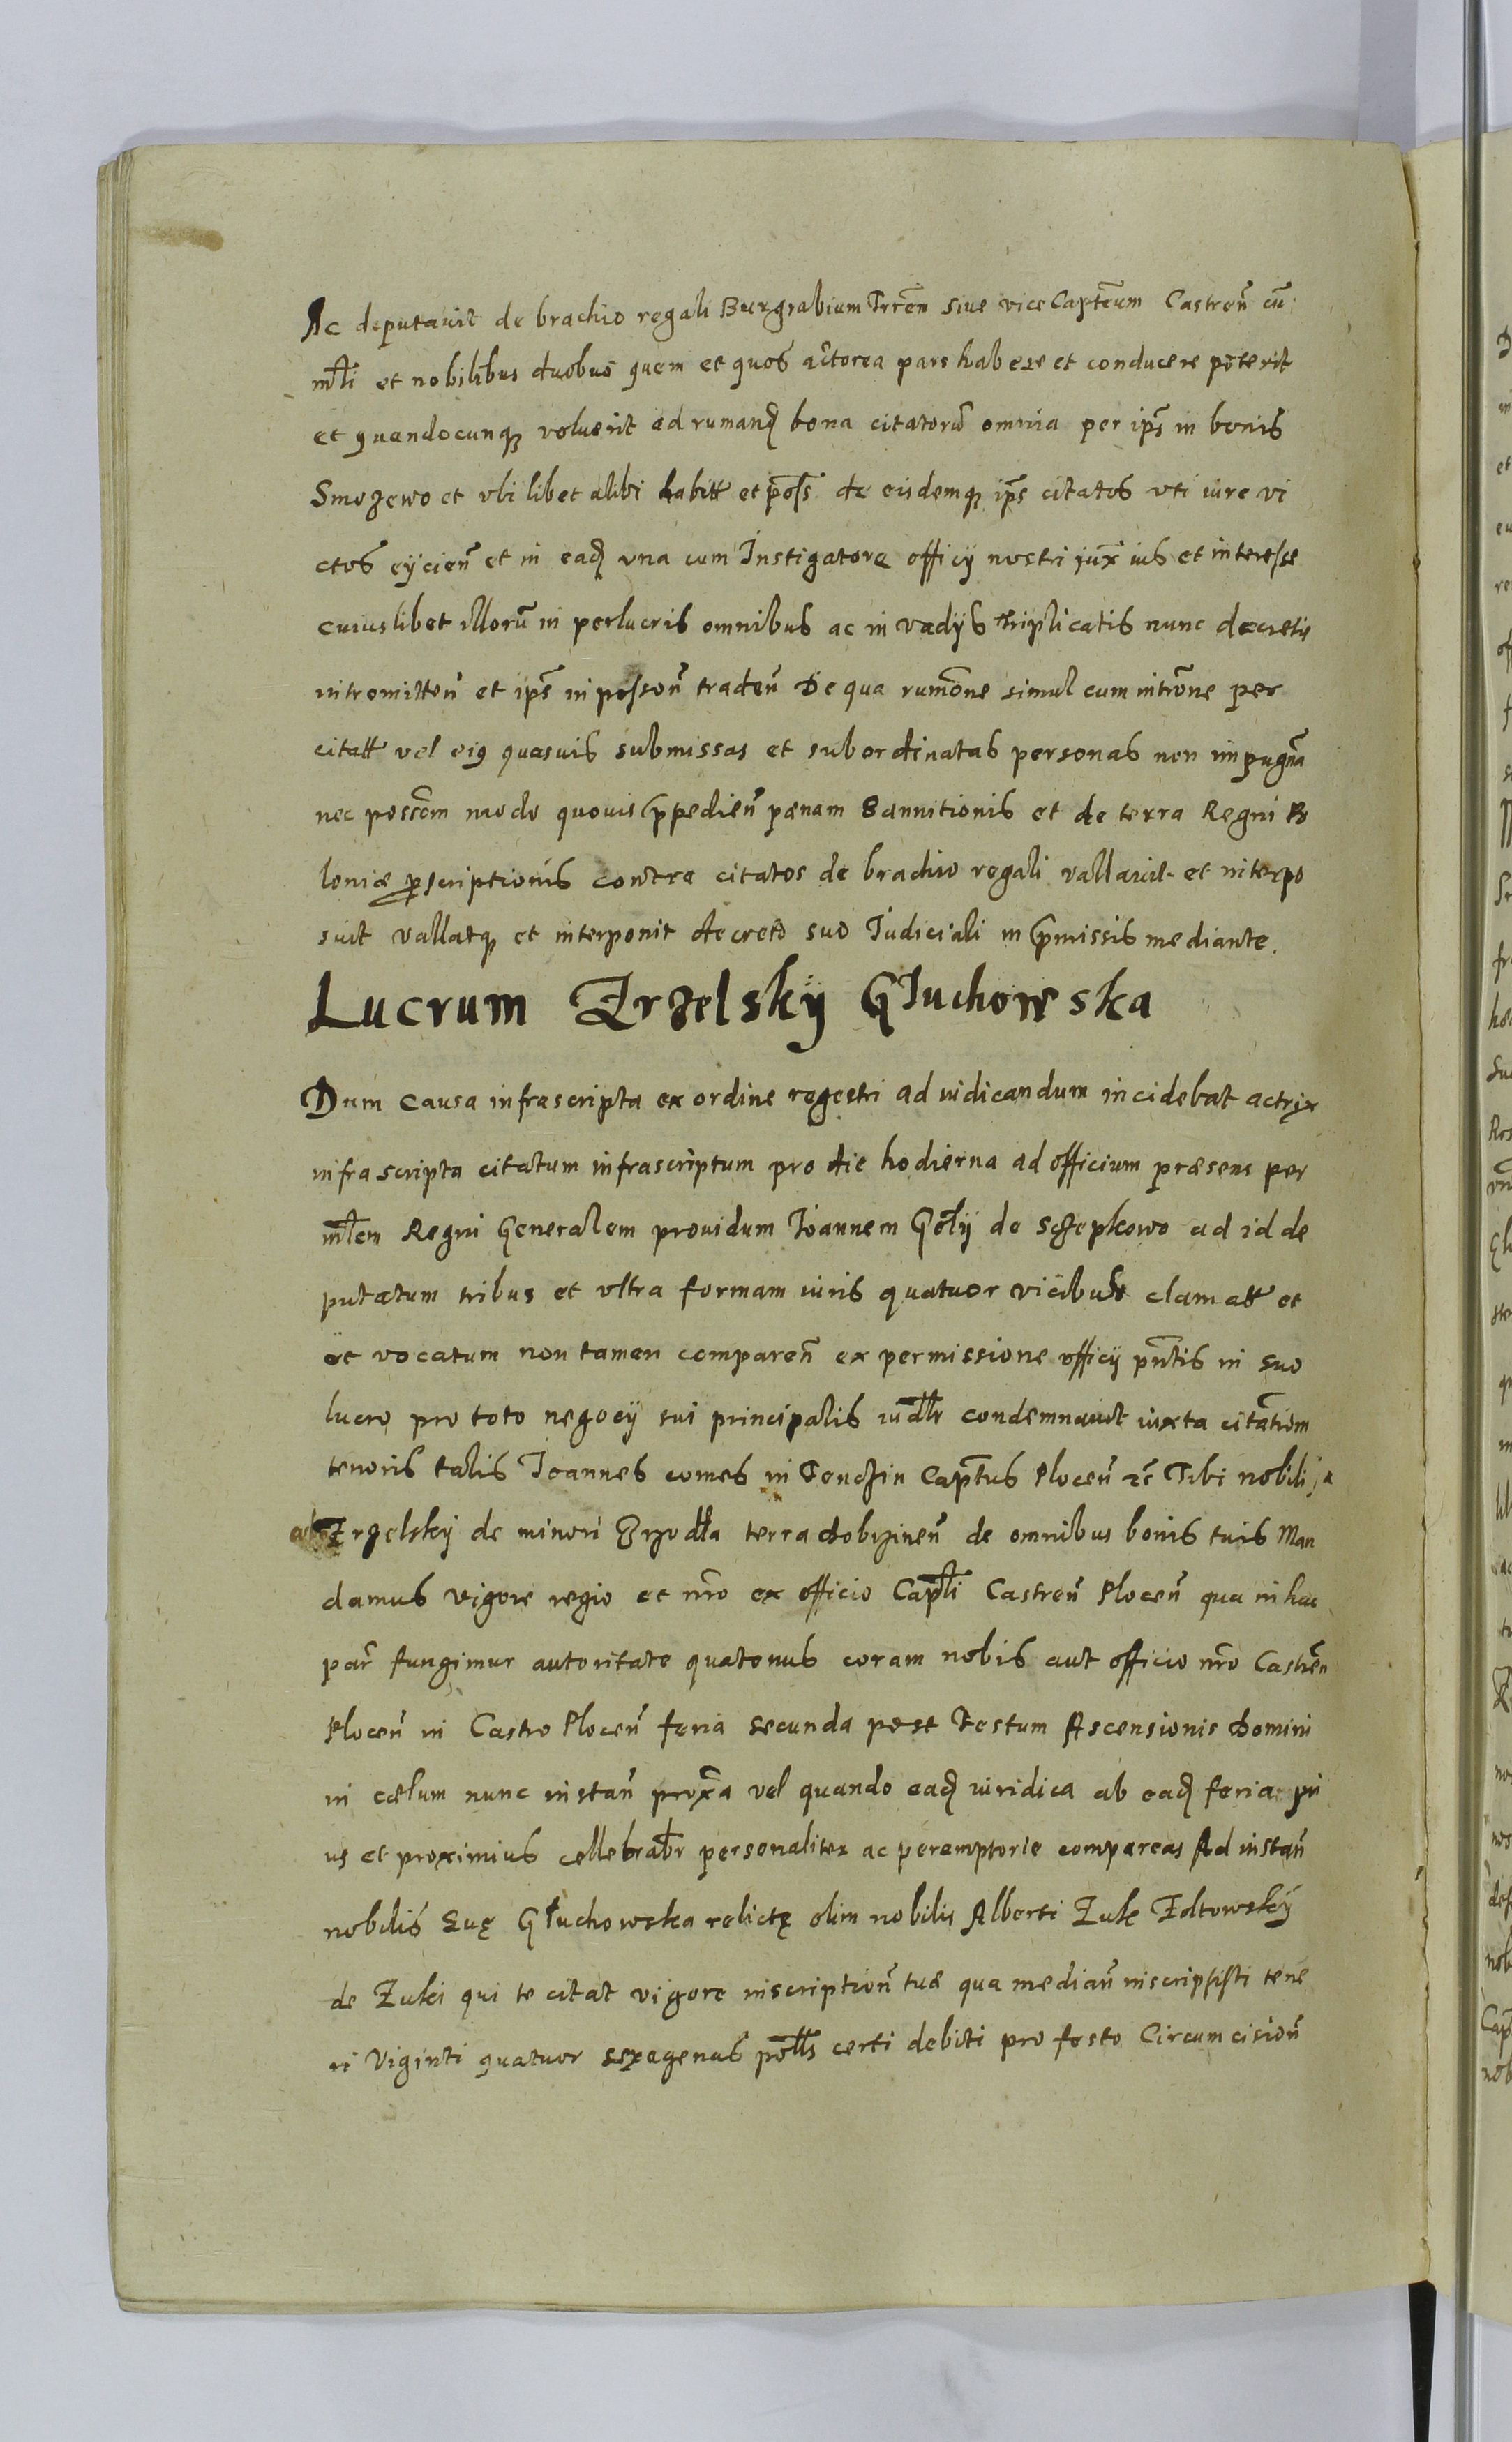 Ac deputauit de brachio regali Burgrabium Trrēm siue vice Captēum Castreñ cū
młti et nobilibus duobus quem et quos actorea pars habere et conducere poterit
et quandocunqʒ voluerit ad rumanḍ bona citatorū omnia per ip̄s in bonis
Smozewo et vbi libet alibi habitt et poss̄ de eisdemqʒ ip̄s citatos vti iure vi
ctos eÿcieñ et in eaḍ vna cum Instigatore officÿ nostri iux̄ ius et interesse
cuiuslibet illorū in perlucris omnibus ac in vadÿs triplicatis nunc decretis
intromitteñ et ip̄s in possoñ tradeñ De qua rumōne simul cum intrōne per
citatt vel eiꝰ quasuis submissas et subordinatas personas non impugnā
nec possōm modo quouis p̄pedieñ pœnam Bannitionis et de terra Regni Po
loniæ p̱scriptionis contra citatos de brachio regali vallauit et interpo
suit vallatqʒ et interponit decreto suo Iudiciali in p̄missis mediante.
Lucrum Zrzelskÿ Głuchowska
Dum causa infrascripta ex ordine regestri ad iudicandum incidebat actrix
infrascripta citatum infrascriptum pro die hodierna ad officium præsens per
młem Regni Generalem prouidum Ioannem Gołÿ de Sczepkowo ad id de
putatum tribus et vltra formam iuris quatuor vicibus clamatt et
et vocatum non tamen compareñ ex permissione officÿ pn̄tis in suo
lucro pro toto negocÿ sui principalis iudłr condemnauit iuxta citātiom
tenoris talis Ioannes comes in Tenczin Captūs Ploceñ ec̄ Tibi nobili
Zrzelskÿ de minori Zrzodła terra dobrzineñ de omnibus bonis tuis Man
damus vigore regio et nr̄o ex officio Capłi Castreñ Ploceñ qua in hac
par̄ fungimur autoritate quatenus coram nobis aut officio nr̄o Castreñ
Ploceñ in Castro Ploceñ feria secunda post Festum Ascensionis Domini
in cælum nunc instañ prox̄a vel quando eaḍ iuridica ab eaḍ feria pri
us et proximius cellebrabr̄ personaliter ac peremptorie compareas Ad instañ
nobilis Euę Głuchowska relictę olim nobilis Alberti Zuk Zoltowskÿ
de Zuki qui te citat vigore inscriptioñ tuæ qua mediañ inscripsisti tene
ri Viginti quatuor sexagenas połls certi debiti pro festo Circumcisioñ